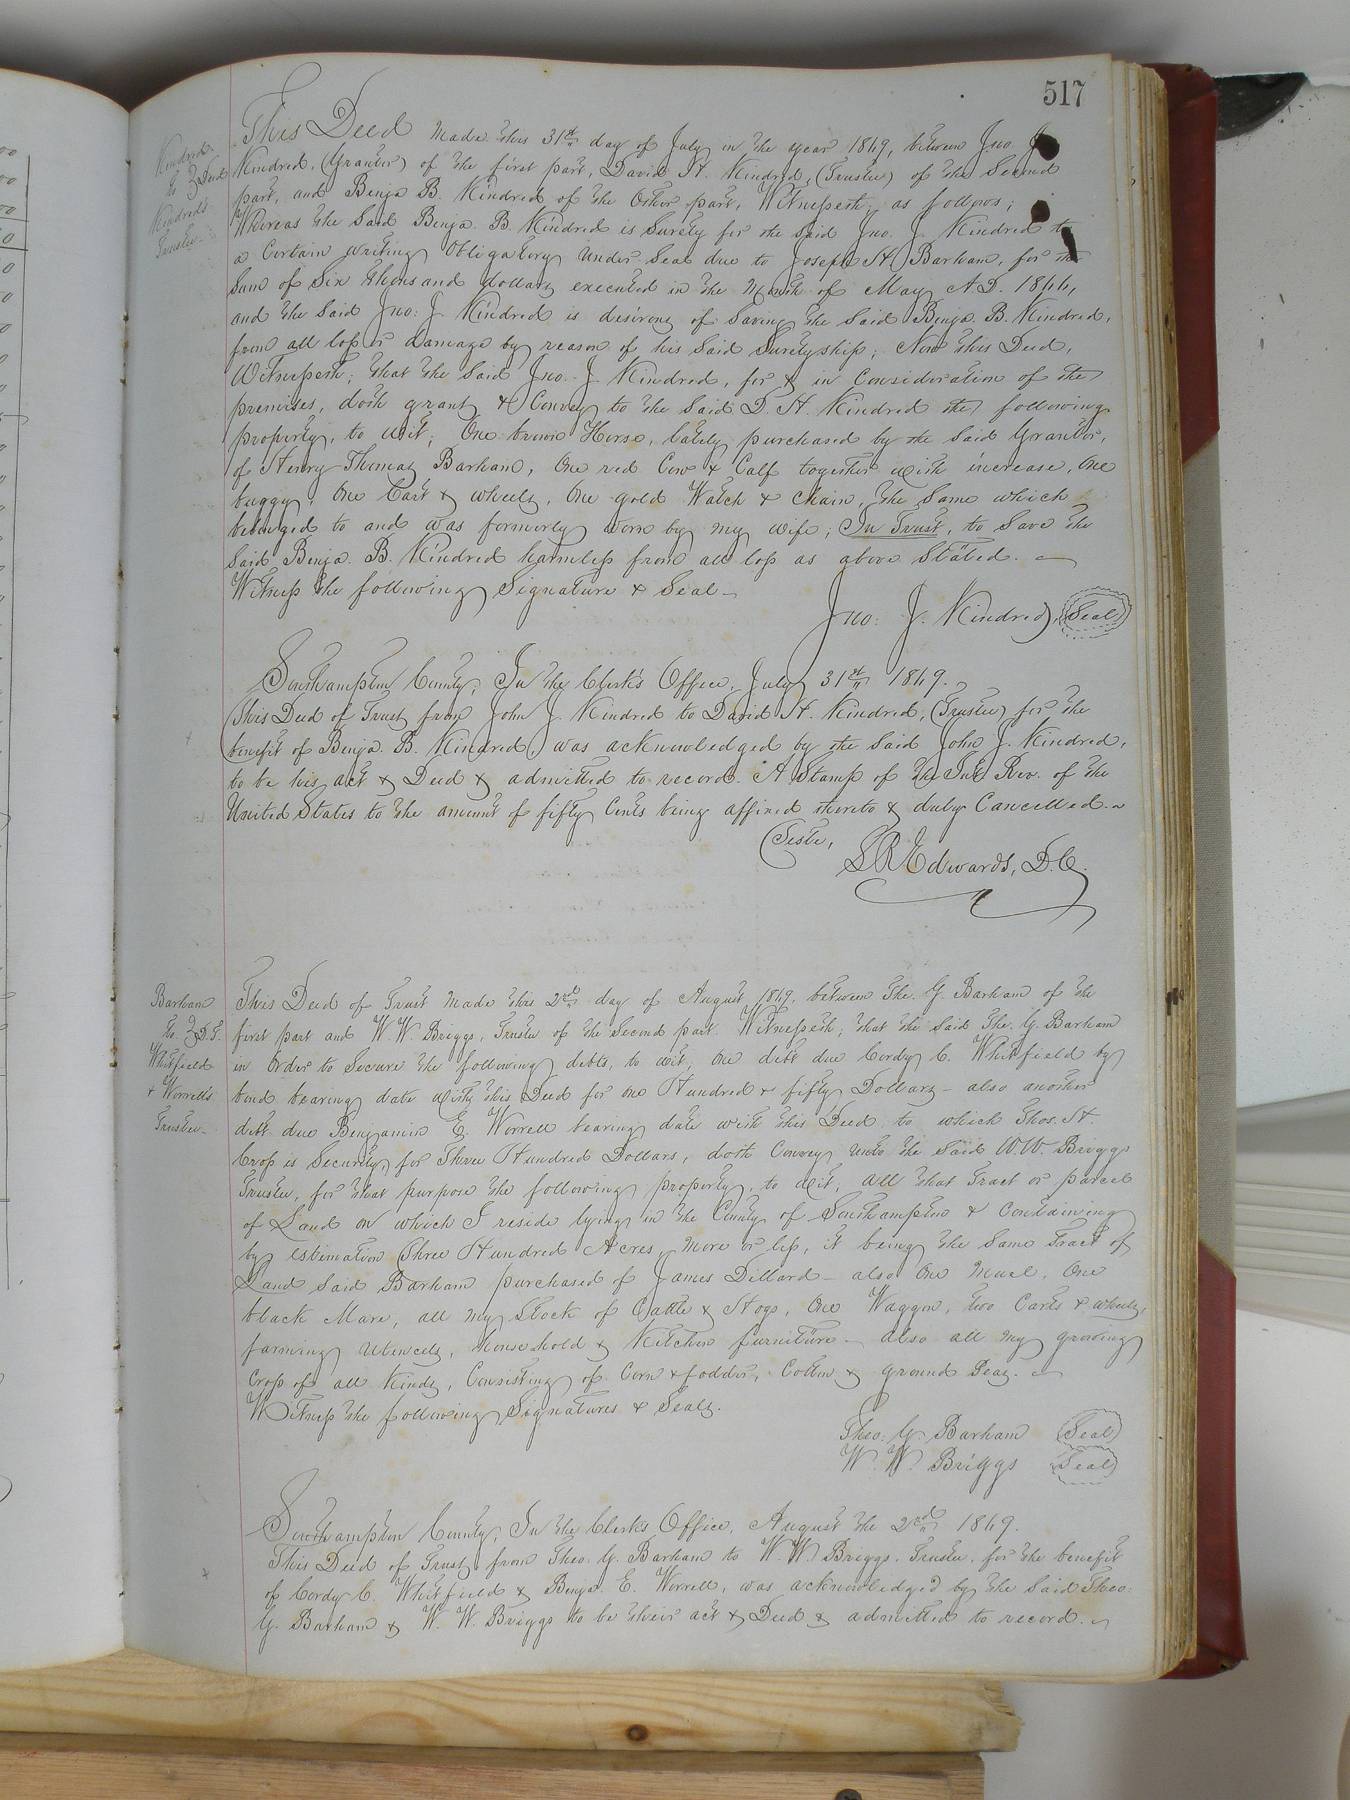 517
Kindred
to } Deed
Kindred's
Trustee
This Deed made this 31st day of July in the year 1869, between Jno. J.
Kindred, (Grantor) of the first part, David H. Kindred, (Trustee) of the Second
part, and Benja B. Kindred of the Other part, Witnesseth; as follows;
Whereas the Said Benja. B. Kindred is Surety for the said Jno. J. Kindred to
a Certain writing Obligatory under Seal due to Joseph H. Barham, for the
Sum of Six thousand dollars executed in the Month of May A.D. 1866,
and the Said Jno: J. Kindred is desirous of Saving the Said Benja. B. Kindred,
from all loss or damage by reason of his Said Suretyship; Now this Deed,
Witnesseth; that the Said Jno. J Kindred, for & in Consideration of the
premises, doth grant & Convey to the Said D. H. Kindred the following
property, to wit; One brown Horse, lately purchased by the Said Grantor,
of Henry Thomas Barham, One red Cow & Calf together with increase, One
buggy, One Cart & wheels, One gold Watch & chain, the Same which
belonged to and was formerly worn by my wife; In Trust, to Save the
Said Benja. B. Kindred harmless from all loss as above Stated.
Witness the following Signature & Seal
Jno: J. Kindred, (Seal)
Southampton County; In the Clerk's Office, July 31st 1869.
This Deed of Trust from John J. Kindred to David H. Kindred, (Trustee) for the
benefit of Benja. B. Kindred, was acknowledged by the Said John J. Kindred,
to be his act & Deed & admitted to record. A Stamp of the Int. Rev. of the
United States to the amount of fifty Cents being affixed thereto & duly Cancelled.
Teste,
L R Edwards, D.C.
Barham
to } D.T.
Whitfield
& Worrell's
Trustee
This Deed of Trust made this 2nd day of August 1869, between The. G. Barham of the
first part and W. W. Briggs, Trustee of the Second part. Witnesseth; that the Said The. G. Barham
in Order to Secure the following debts, to wit, One debt due Cordy C. Whitfield by
bond bearing date with this Deed for one Hundred & fifty Dollars - also another
debt due Benjamin E. Worrell bearing date with this Deed to which Thos. H.
Crop is Security, for Three Hundred Dollars, doth Convey unto the Said W. W. Briggs
Trustee, for that purpose the following property, to wit, all that Tract or parcel
of Land on which I reside lying in the County of Southampton & Containing
by estimation Three Hundred Acres, more or less, it being the Same Tract of
Land Said Barham purchased of James Dillard - also One Muel, One
black Mare, all my Stock of Cattle & Hogs, One Waggon, two Carts & wheels,
farming Utencels, household & Kitchen furniture - also all my growing
Crop of all Kinds, Consisting of Corn & fodder, Cotton & ground Peas.
Witness the following Signatures & Seals.
Theo: G Barham (Seal)
W. W. Briggs (Seal)
Southampton County, In the Clerk's Office, August the 2nd 1869.
This Deed of Trust from Theo. G. Barham to W. W. Briggs. Trustee, for the benefit
of Cordy C. Whitfield & Benja. E. Worrell, was acknowledged by the Said Theo:
G. Barham & W. W. Briggs to be their act & Deed & admitted to record.